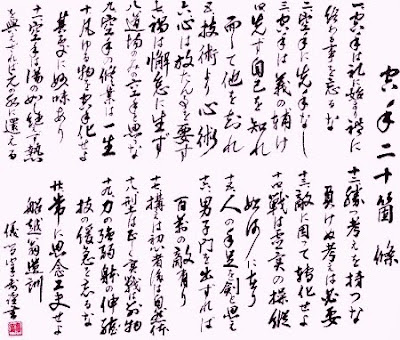 空手二十箇條
一 空手は礼に始り禮に
終わる事を忘るな
二 空手に先手なし
三 空手は義の輔け
四 先ず自己を知れ
而して他を知れ
五 技術より心術
六 心は放たん事を要す
七 禍は懈怠に生ず
八 道場のみの空手と思ふな
九 空手の修業は一生
十 凡ゆる物を空手化せよ
其処に妙味あり
十一 空手は湯の如し絶えず熱
を與えざれば元の水に還える
十二 勝つ考えを持つな
負けぬ考えは必要
十三 敵に因って轉化せよ
十四 戦は虚実の操縦
如何に在り
十五 人の手足を剣と思え
十六 男子門を出ずれば
百万の敵有り
十七 構えは初心者後は自然体
十八 型は正しく実戦は別物
十九 力の強弱体の伸縮
技の緩急を忘るな
二十 常に思念工夫せよ
船越翁遺訓
儀 書